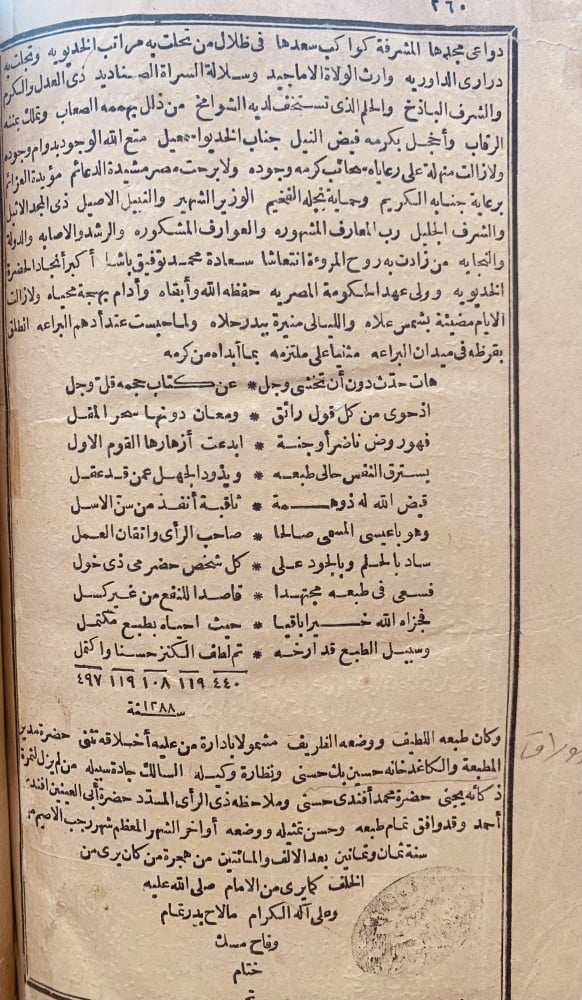 ٢٦٠
دواعى مجدها المشرقة كواكب سعدها فى ظلال من تحلت به مراتب الخديويه وتجلت به
درارى الداوريه وارث الولاة الاماجيد وسلالة السراة الصناديد ذى العدل والكرم
والشرف الباذخ والحلم الذى تستخف لديه الشوامخ من ذلل بهممه الصعاب وتملك بمننه
الرقاب وأخجل بكرمه فيض النيل جناب الخديو اسمعيل متع الله الوجود بدوام وجوده
ولازالت منهلة على رعاياه سحائب كرمه وجوده ولابرحت مصر مشيدة الدعائم مؤيدة العزائم
برعاية جنابه الكريم وحماية نجله الفخيم الوزير الشهير والنبيل الاصيل ذى المجد الاثيل
والشرف الجليل رب المعارف المشهوره والعوارف المشكوره والرشد والاصابه والدولة
والنجابه من زادت به روح المروءة انتعاشا سعادة محمد توفيق باشا أكبر أنجاد الحضرة
الخديويه وولى عهد الحكومة المصريه حفظه الله وأبقاه وأدام بهجة محياه ولازالت
الايام مضيئة بشمس علاه والليالى منيرة ببدر حلاه ولما حبست عتد أدهم البراعه انطلق
بقرظه فى ميدان البراعه مثنيا على ملتزمه بما أبداه من كرمه
هات حدث دون أن تخشى وجل * عن كتاب حجمه قل وجل
اذ حوى من كل قول رائق * ومعان دونها سحر المقل
فهو روض ناضر أو جنة * ابدعت أزهارها القوم الاول
يسترق النفس حالى طبعه * ويذود الجهل عمن قد عقل
قيض الله له ذو همة * ثاقبة أنفذ من سن الاسل
وهو باعيسى المسمى صالحا * صاحب الرأى واتقان العمل
ساد بالحلم وبالجود على * كل شخص حضرمى ذى خول
فسعى فى طبعه مجتهدا * قاصدا للنفع من غير كسل
فجزاه الله خيرا باقيا * حيث احياه بطبع مكتمل
وسبيل الطبع قد ارخه * تم لطف الكنز حسنا واكتمل
٤٤٠ ١١٩ ١٠٨ ١١٩ ٤٩٧
سنة ١٢٨٨
وكان طبعه اللطيف ووضعه الظريف مشمولا بادارة من عليه أخلاقه تثنى حضرة مدير
المطبعة والكاغدخانه حسين بك حسنى ونظارة وكيله السالك جادة سبيله من لم يزل لثمرة
ذكائه يجنى حضرة محمد أفندى حسنى وملاحظه ذى الرأى المسدد حضرة أبى العينين افندى
أحمد وقد وافق تمام طبعه وحسن تمثيله ووضعه أواخر الشهر المعظم شهر رجب الاصم من
سنة ثمان وثمانين بعد الالف والمائتين من هجرة من كان يرى من
الخلف كما يرى من الامام صلى الله عليه
وعلى آله الكرام مالاح بدر تمام
وفاح مسك
ختام